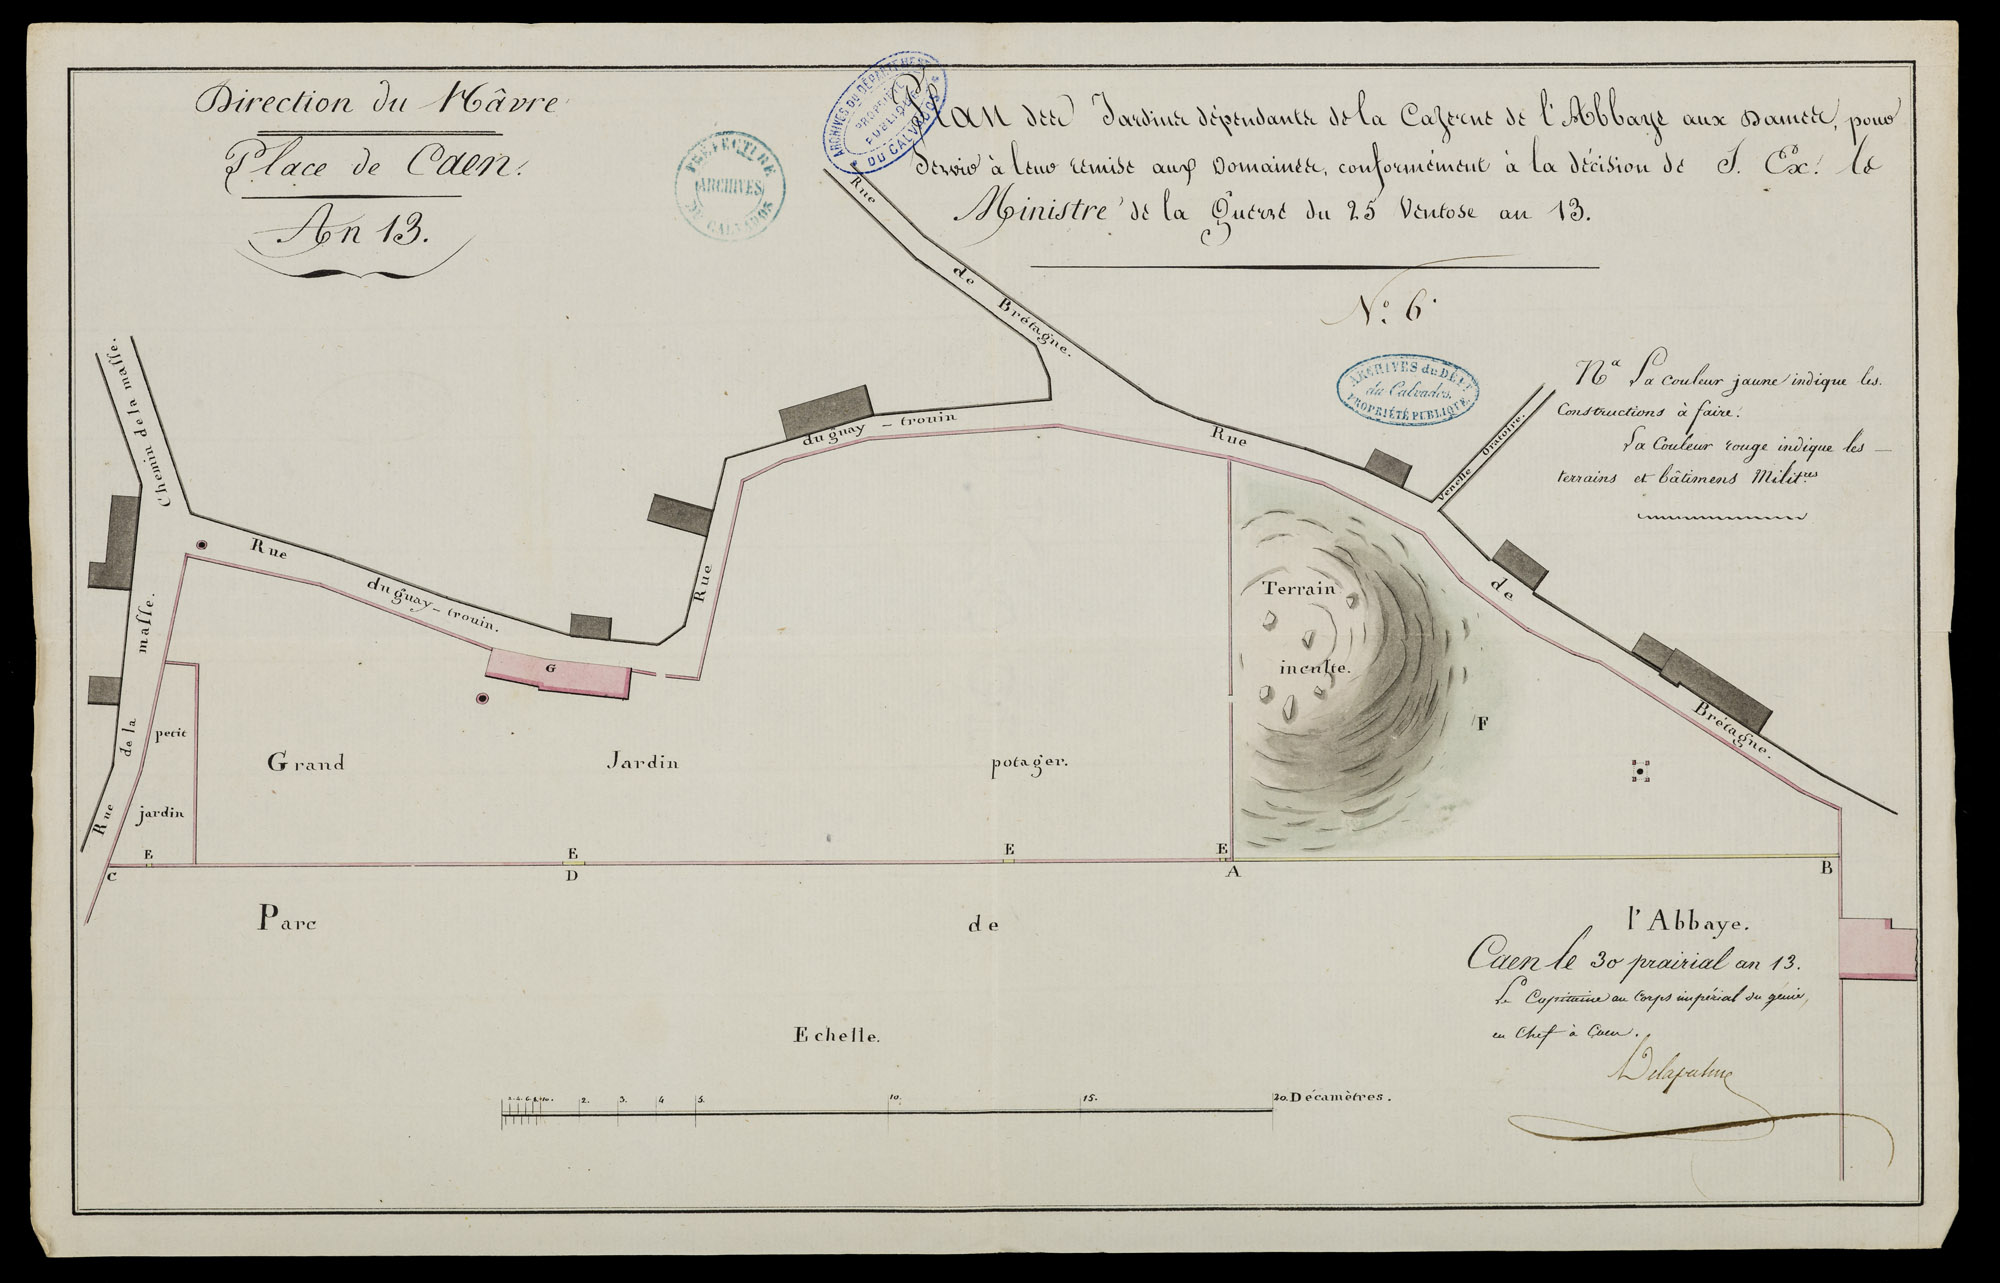 Direction du Hâvre
Place de Caen.
An 13.
PRÉFECTURE
ARCHIVES
DU CALVADOS
ARCHIVES DU DÉPARTEMENT
PROPRIÉTÉ
PUBLIQUE
DU CALVADOS
Plan des Jardins dépendants de la Caserne de l'Abbaye aux Dames, pour
servir à leur remise aux Domaines, conformément à la décision de S. Ex. le
Ministre de la Guerre du 25 Ventose an 13.
N.º 6.
ARCHIVES du DÉP.T
du Calvados.
PROPRIÉTÉ PUBLIQUE.
Nª La couleur jaune indique les
Constructions à faire.
La Couleur rouge indique les
terrains et bâtimens Milit.res
Rue de Brétagne.
Chemin de la masse.
Rue du guay-trouin
Rue de Brétagne.
Venelle Oratoire.
Rue du guay-trouin.
Rue de la masse.
G
Terrain
inculte.
F
petit
jardin
Grand Jardin potager.
E E E E
C D A B
Parc de l'Abbaye.
Caen le 30 prairial an 13.
Le Capitaine au Corps impérial du génie,
en Chef à Caen.
Echelle.
2. 3. 4 5. 10. 15. 20. Décamètres.